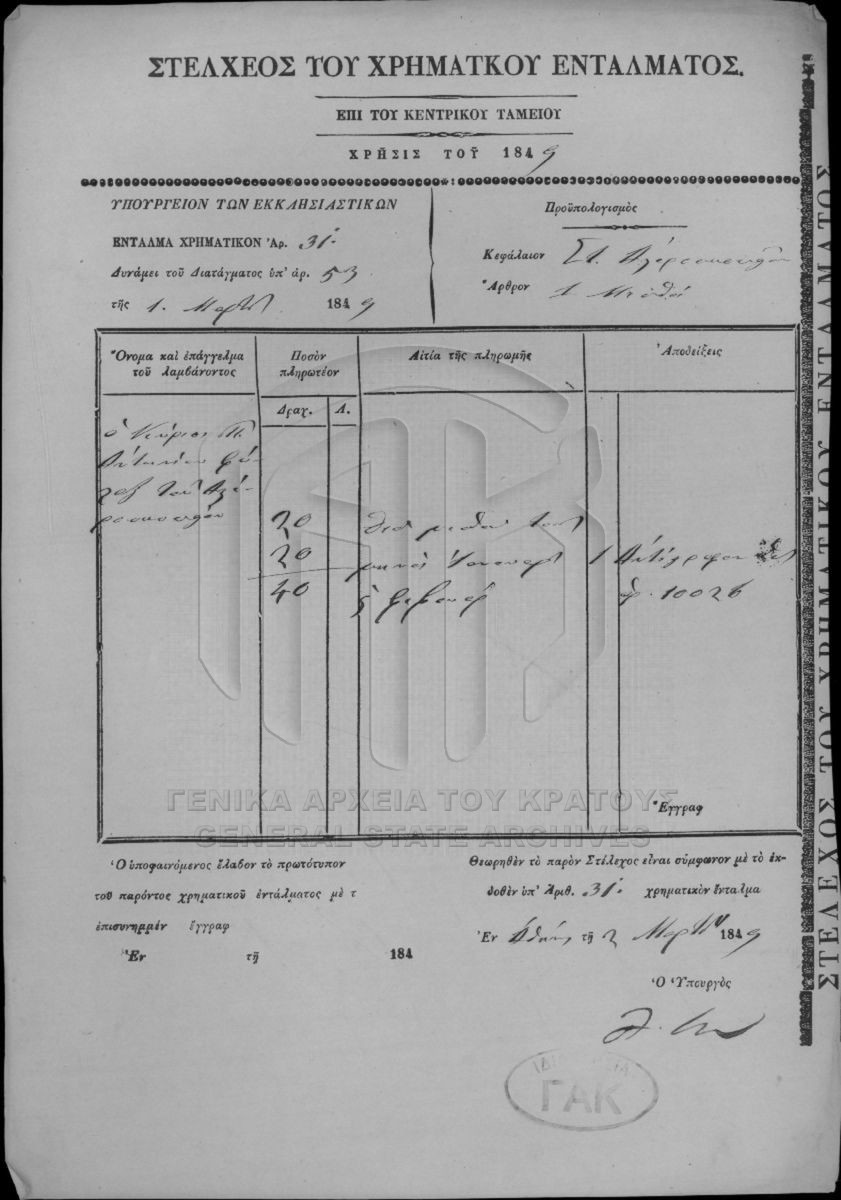 ΣΤΕΛΧΕΟΣ ΤΟΥ ΧΡΗΜΑΤΚΟΥ ΕΝΤΑΛΜΑΤΟΣ.
ΕΠΙ ΤΟΥ ΚΕΝΤΡΙΚΟΥ ΤΑΜΕΙΟΥ
ΧΡΗΣΙΣ ΤΟΥ 1849
ΥΠΟΥΡΓΕΙΟΝ ΤΩΝ ΕΚΚΛΗΣΙΑΣΤΙΚΩΝ
ΕΝΤΑΛΜΑ ΧΡΗΜΑΤΙΚΟΝ Ἀρ. 31.
Δυνάμει τοῦ Διατάγματος ὑπ' ἀρ. 53
τῆς 1. Μαρτίου 1849
Προϋπολογισμὸς
Κεφάλαιον
Ἄρθρον 1
Ὄνομα καὶ ἐπάγγελμα
τοῦ λαμβάνοντος
Ποσὸν
πληρωτέον
Αἰτία τῆς πληρωμῆς
Ἀποδείξεις
Δραχ.
Λ.
ὁ Κύριος
τοῦ
20
20
μηνὸς
1
40
ἀρ. 10026
Ἔγγραφ
ΓΕΝΙΚΑ ΑΡΧΕΙΑ ΤΟΥ ΚΡΑΤΟΥΣ
GENERAL STATE ARCHIVES
Ὁ ὑποφαινόμενος ἔλαβον τὸ πρωτότυπον
τοῦ παρόντος χρηματικοῦ ἐντάλματος μὲ τ
ἐπισυνημμέν ἔγγραφ
Ἐν τῇ 184
Θεωρηθὲν τὸ παρὸν Στέλεχος εἶναι σύμφωνον μὲ τὸ ἐκ-
δοθὲν ὑπ' Ἀριθ. 31. χρηματικὸν ἔνταλμα
Ἐν Ἀθήναις τῇ 2 Μαρτίου 1849
Ὁ Ὑπουργὸς
ΓΑΚ
ΣΤΕΛΕΧΟΣ ΤΟΥ ΧΡΗΜΑΤΙΚΟΥ ΕΝΤΑΛΜΑΤΟΣ